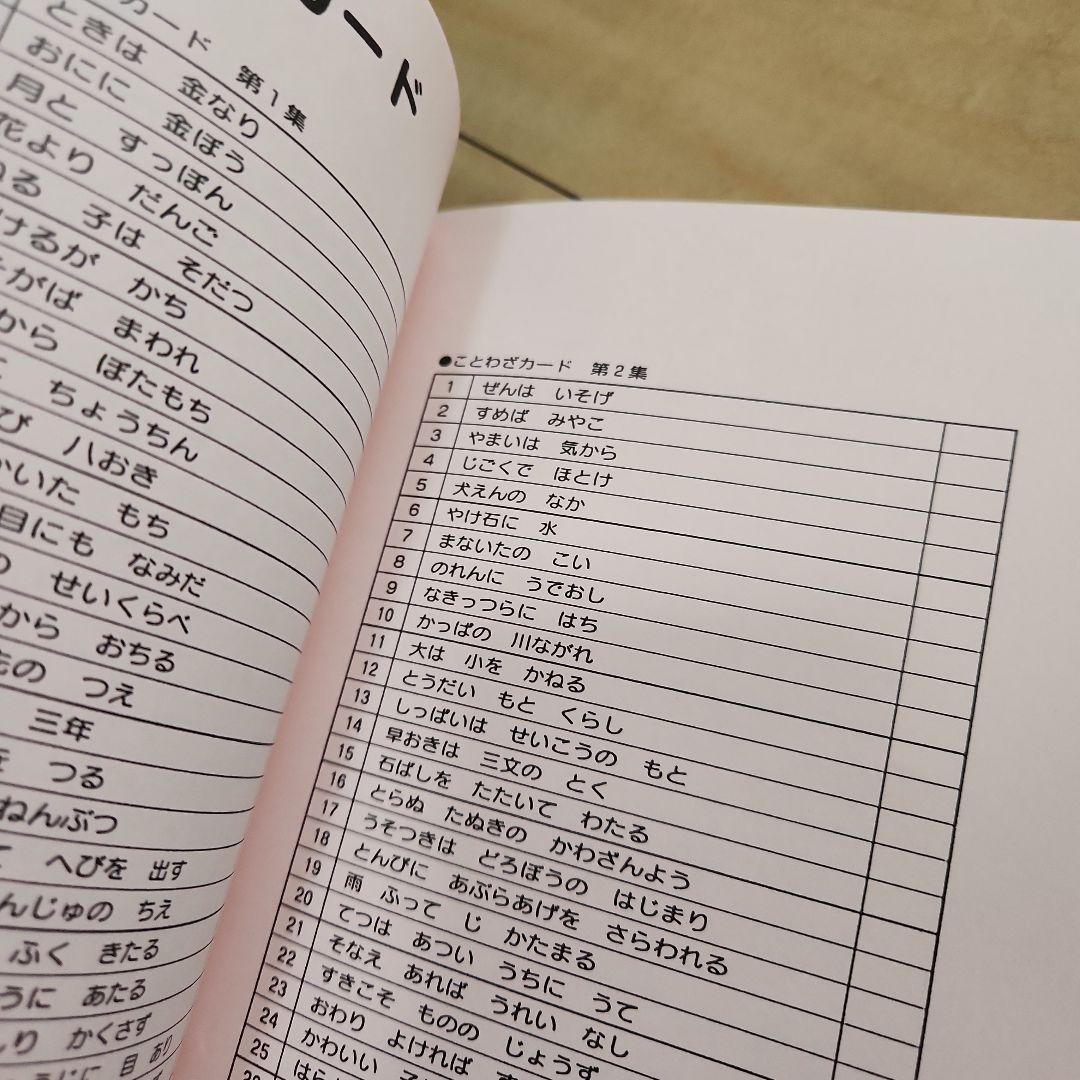 ード
カード 第1集
ときは 金なり
おにに 金ぼう
月と すっぽん
花より だんご
ねる 子は そだつ
けるが かち
そがば まわれ
から ぼたもち
ちょうちん
び 八おき
かいた もち
目にも なみだ
の せいくらべ
から おちる
つえ
三年
つる
ねんぶつ
て へびを 出す
んじゅの ちえ
ふく きたる
うに あたる
しり かくさず
うじに 目 あり
●ことわざカード 第2集
1 ぜんは いそげ
2 すめば みやこ
3 やまいは 気から
4 じごくで ほとけ
5 犬えんの なか
6 やけ石に 水
7 まないたの こい
8 のれんに うでおし
9 なきっつらに はち
10 かっぱの 川ながれ
11 大は 小を かねる
12 とうだい もと くらし
13 しっぱいは せいこうの もと
14 早おきは 三文の とく
15 石ばしを たたいて わたる
16 とらぬ たぬきの かわざんよう
17 うそつきは どろぼうの はじまり
18 とんびに あぶらあげを さらわれる
19 雨 ふって じ かたまる
20 てつは あつい うちに うて
21 そなえ あれば うれい なし
22 すきこそ ものの じょうず
23 おわり よければ
24 かわいい
25 はら